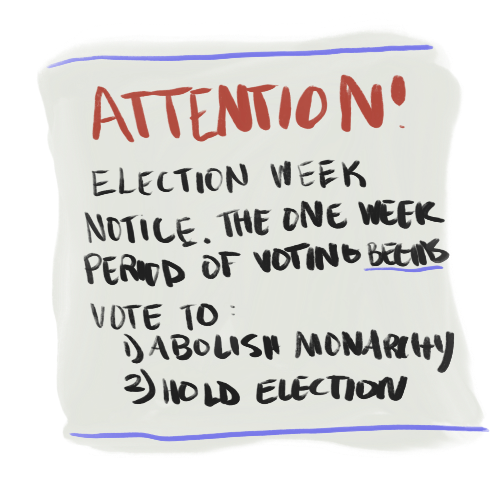 ATTENTION!
ELECTION WEEK
NOTICE. THE ONE WEEK
PERIOD OF VOTING BEGINS
VOTE TO:
1) ABOLISH MONARCHY
2) HOLD ELECTION